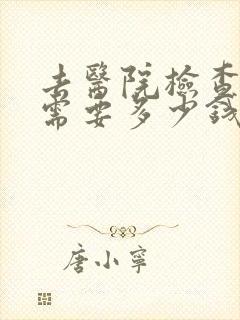 去醫院檢查
需要多少錢
唐小寧